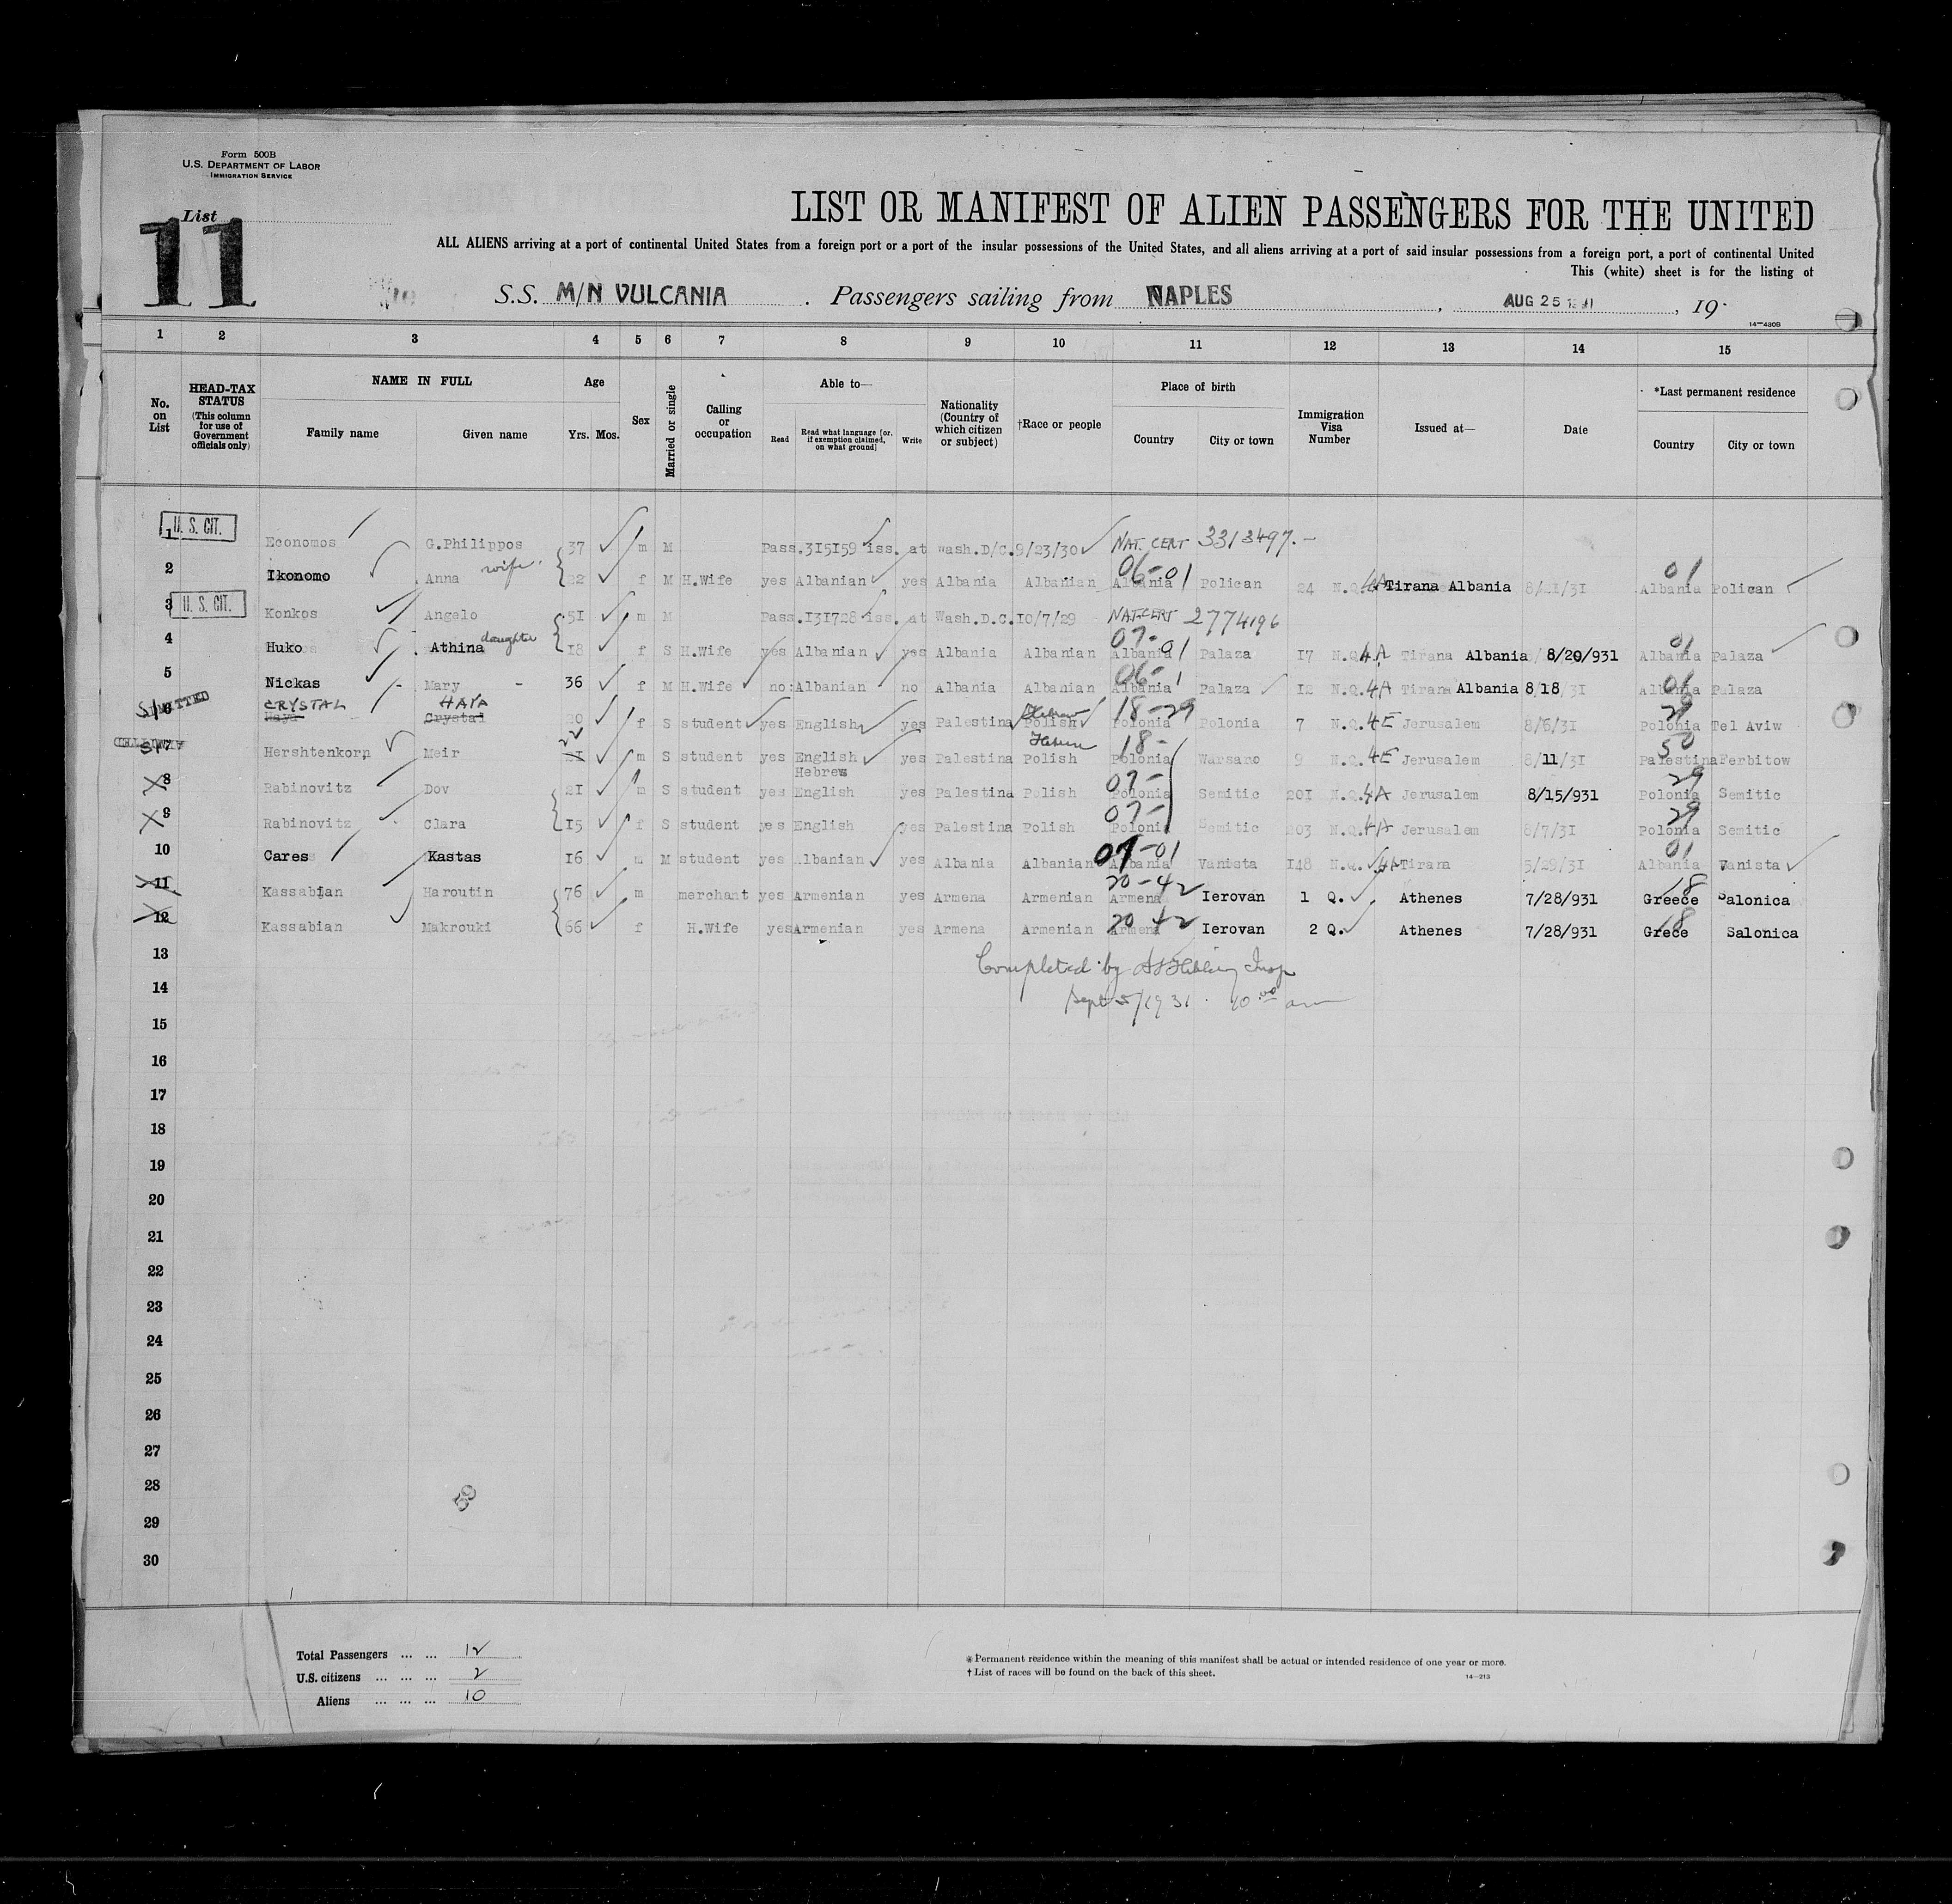 Form 500B
U.S. DEPARTMENT OF LABOR
IMMIGRATION SERVICE
List
11
LIST OR MANIFEST OF ALIEN PASSENGERS FOR THE UNITED
ALL ALIENS arriving at a port of continental United States from a foreign port or a port of the insular possessions of the United States, and all aliens arriving at a port of said insular possessions from a foreign port, a port of continental United
This (white) sheet is for the listing of
S.S. M/N VULCANIA . Passengers sailing from NAPLES , AUG 25 , 19
14-430B
1 2 3 4 5 6 7 8 9 10 11 12 13 14 15
No. on List
HEAD-TAX STATUS (This column for use of Government officials only)
NAME IN FULL
Family name Given name
Age
Yrs. Mos.
Sex
Married or single
Calling or occupation
Able to—
Read Read what language [or, if exemption claimed, on what ground] Write
Nationality (Country of which citizen or subject)
†Race or people
Place of birth
Country City or town
Immigration Visa Number
Issued at—
Date
*Last permanent residence
Country City or town
1 U. S. CIT. Economos G.Philippos 37 m M Pass.315159 iss. at Wash.D/C.9/23/30 NAT. CERT 3313497.-
2 Ikonomo Anna wife 22 f M H.Wife yes Albanian yes Albania Albanian 06-01 Albania Polican 24 N.Q. 4A Tirana Albania 8/21/31 01 Albania Polican
3 U. S. CIT. Konkos Angelo 51 m M Pass.131728 iss. at Wash.D.C.10/7/29 NAT.CERT 2774196
4 Huko Athina daughter 18 f S H.Wife yes Albanian yes Albania Albanian 07-01 Albania Palaza 17 N.Q. 4A Tirana Albania 8/20/931 01 Albania Palaza
5 Nickas Mary - 36 f M H.Wife no Albanian no Albania Albanian 06-1 Albania Palaza 12 N.Q. 4A Tirana Albania 8/18/31 01 Albania Palaza
6 ADMITTED CRYSTAL Haya HAYA Crystal 20 f S student yes English yes Palestina Hebrew Polish 18-29 Polonia Polonia 7 N.Q. 4E Jerusalem 8/6/31 29 Polonia Tel Aviw
7 ADMITTED Hershtenkorn Meir 22 m S student yes English Hebrew yes Palestina Hebrew Polish 18- Polonia Warsano 9 N.Q. 4E Jerusalem 8/11/31 50 Palestina Ferbitow
X 8 Rabinovitz Dov 21 m S student yes English yes Palestina Polish 07- Polonia Semitic 201 N.Q. 4A Jerusalem 8/15/931 29 Polonia Semitic
X 9 Rabinovitz Clara 15 f S student yes English yes Palestina Polish 07- Polonia Semitic 203 N.Q. 4A Jerusalem 8/7/31 29 Polonia Semitic
10 Cares Kastas 16 m M student yes Albanian yes Albania Albanian 07-01 Albania Vanista 148 N.Q. 4A Tirana 5/29/31 01 Albania Vanista
11 Kassabian Haroutin 76 m merchant yes Armenian yes Armena Armenian 20-42 Armena Ierovan 1 Q. Athenes 7/28/931 18 Greece Salonica
12 Kassabian Makrouki 66 f H.Wife yes Armenian yes Armena Armenian 20 42 Armena Ierovan 2 Q. Athenes 7/28/931 18 Grece Salonica
13 Completed by Insp
14 Sept 5/1931. 10 00 am
15
16
17
18
19
20
21
22
23
24
25
26
27
28
29
30
Total Passengers ... ... 12
U.S. citizens ... ... ... 2
Aliens ... ... ... 10
* Permanent residence within the meaning of this manifest shall be actual or intended residence of one year or more.
† List of races will be found on the back of this sheet.
14-213